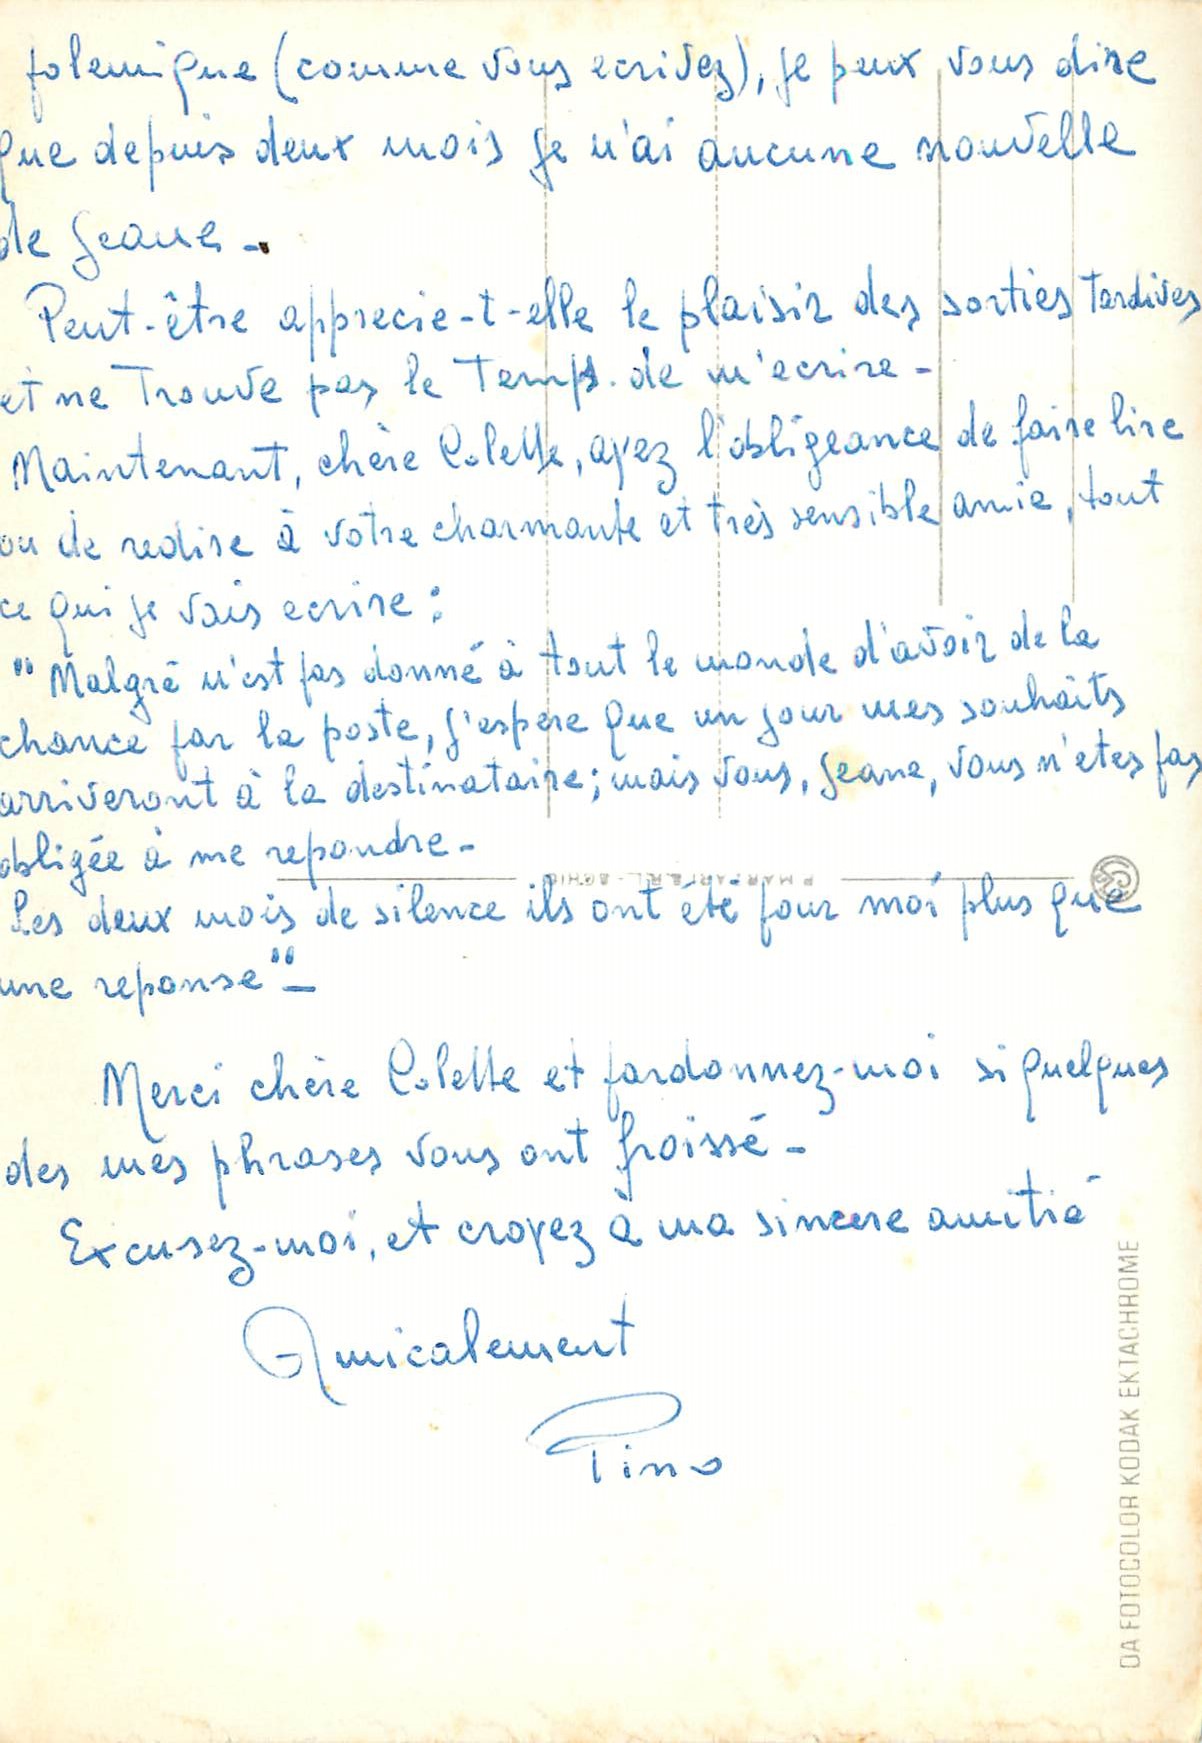 polemique (comme vous ecrivez), je peux vous dire
que depuis deux mois je n'ai aucune nouvelle
de Jeane -
Peut-être apprecie-t-elle le plaisir des sorties tardives
et ne trouve pas le temps de m'ecrire -
Maintenant, chère Colette, ayez l'obligeance de faire lire
ou de redire à votre charmante et très sensible amie, tout
ce qui je vais ecrire :
"Malgré n'est pas donné à tout le monde d'avoir de la
chance par la poste, j'espère que un jour mes souhaits
arriveront à la destinataire; mais vous, Jeane, vous n'etes pas
obligée à me repondre -
Les deux mois de silence ils ont été pour moi plus que
une reponse" -
Merci chère Colette et pardonnez-moi si quelques
des mes phrases vous ont froissé -
Excusez-moi, et croyez à ma sincere amitié
Amicalement
Pino
DA FOTOCOLOR KODAK EKTACHROME